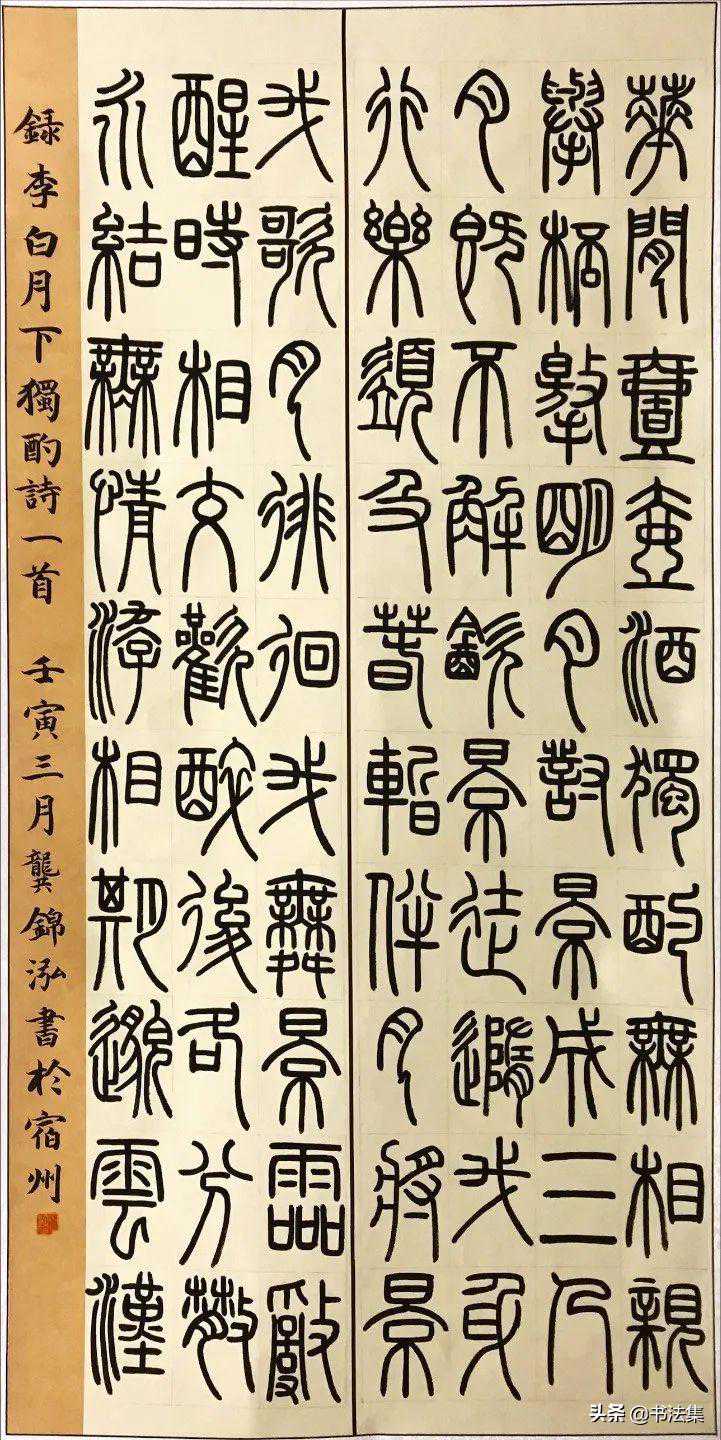 華閒壹壺酒獨酌無相親
舉桮邀明月對景成三人
月既不解飲景徒隨我身
行樂須及春暫伴月將景
我歌月徘徊我舞景霝亂
醒時相交歡醉後各分散
永結無情游相期邈雲漢
録李白月下獨酌詩一首 壬寅三月龔錦泓書於宿州
头条 @书法集